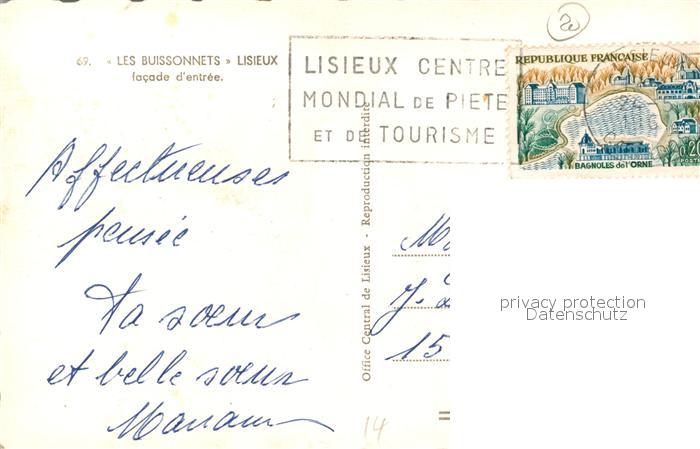 69. « LES BUISSONNETS » LISIEUX
façade d'entrée.
LISIEUX CENTRE
MONDIAL DE PIETE
ET DE TOURISME
REPUBLIQUE FRANÇAISE
0,20
POSTES
BAGNOLES de l'ORNE
Affectueuses
pensée
Ta soeur
et belle soeur
Office Central de Lisieux - Reproduction interdite
15
14
privacy protection
Datenschutz